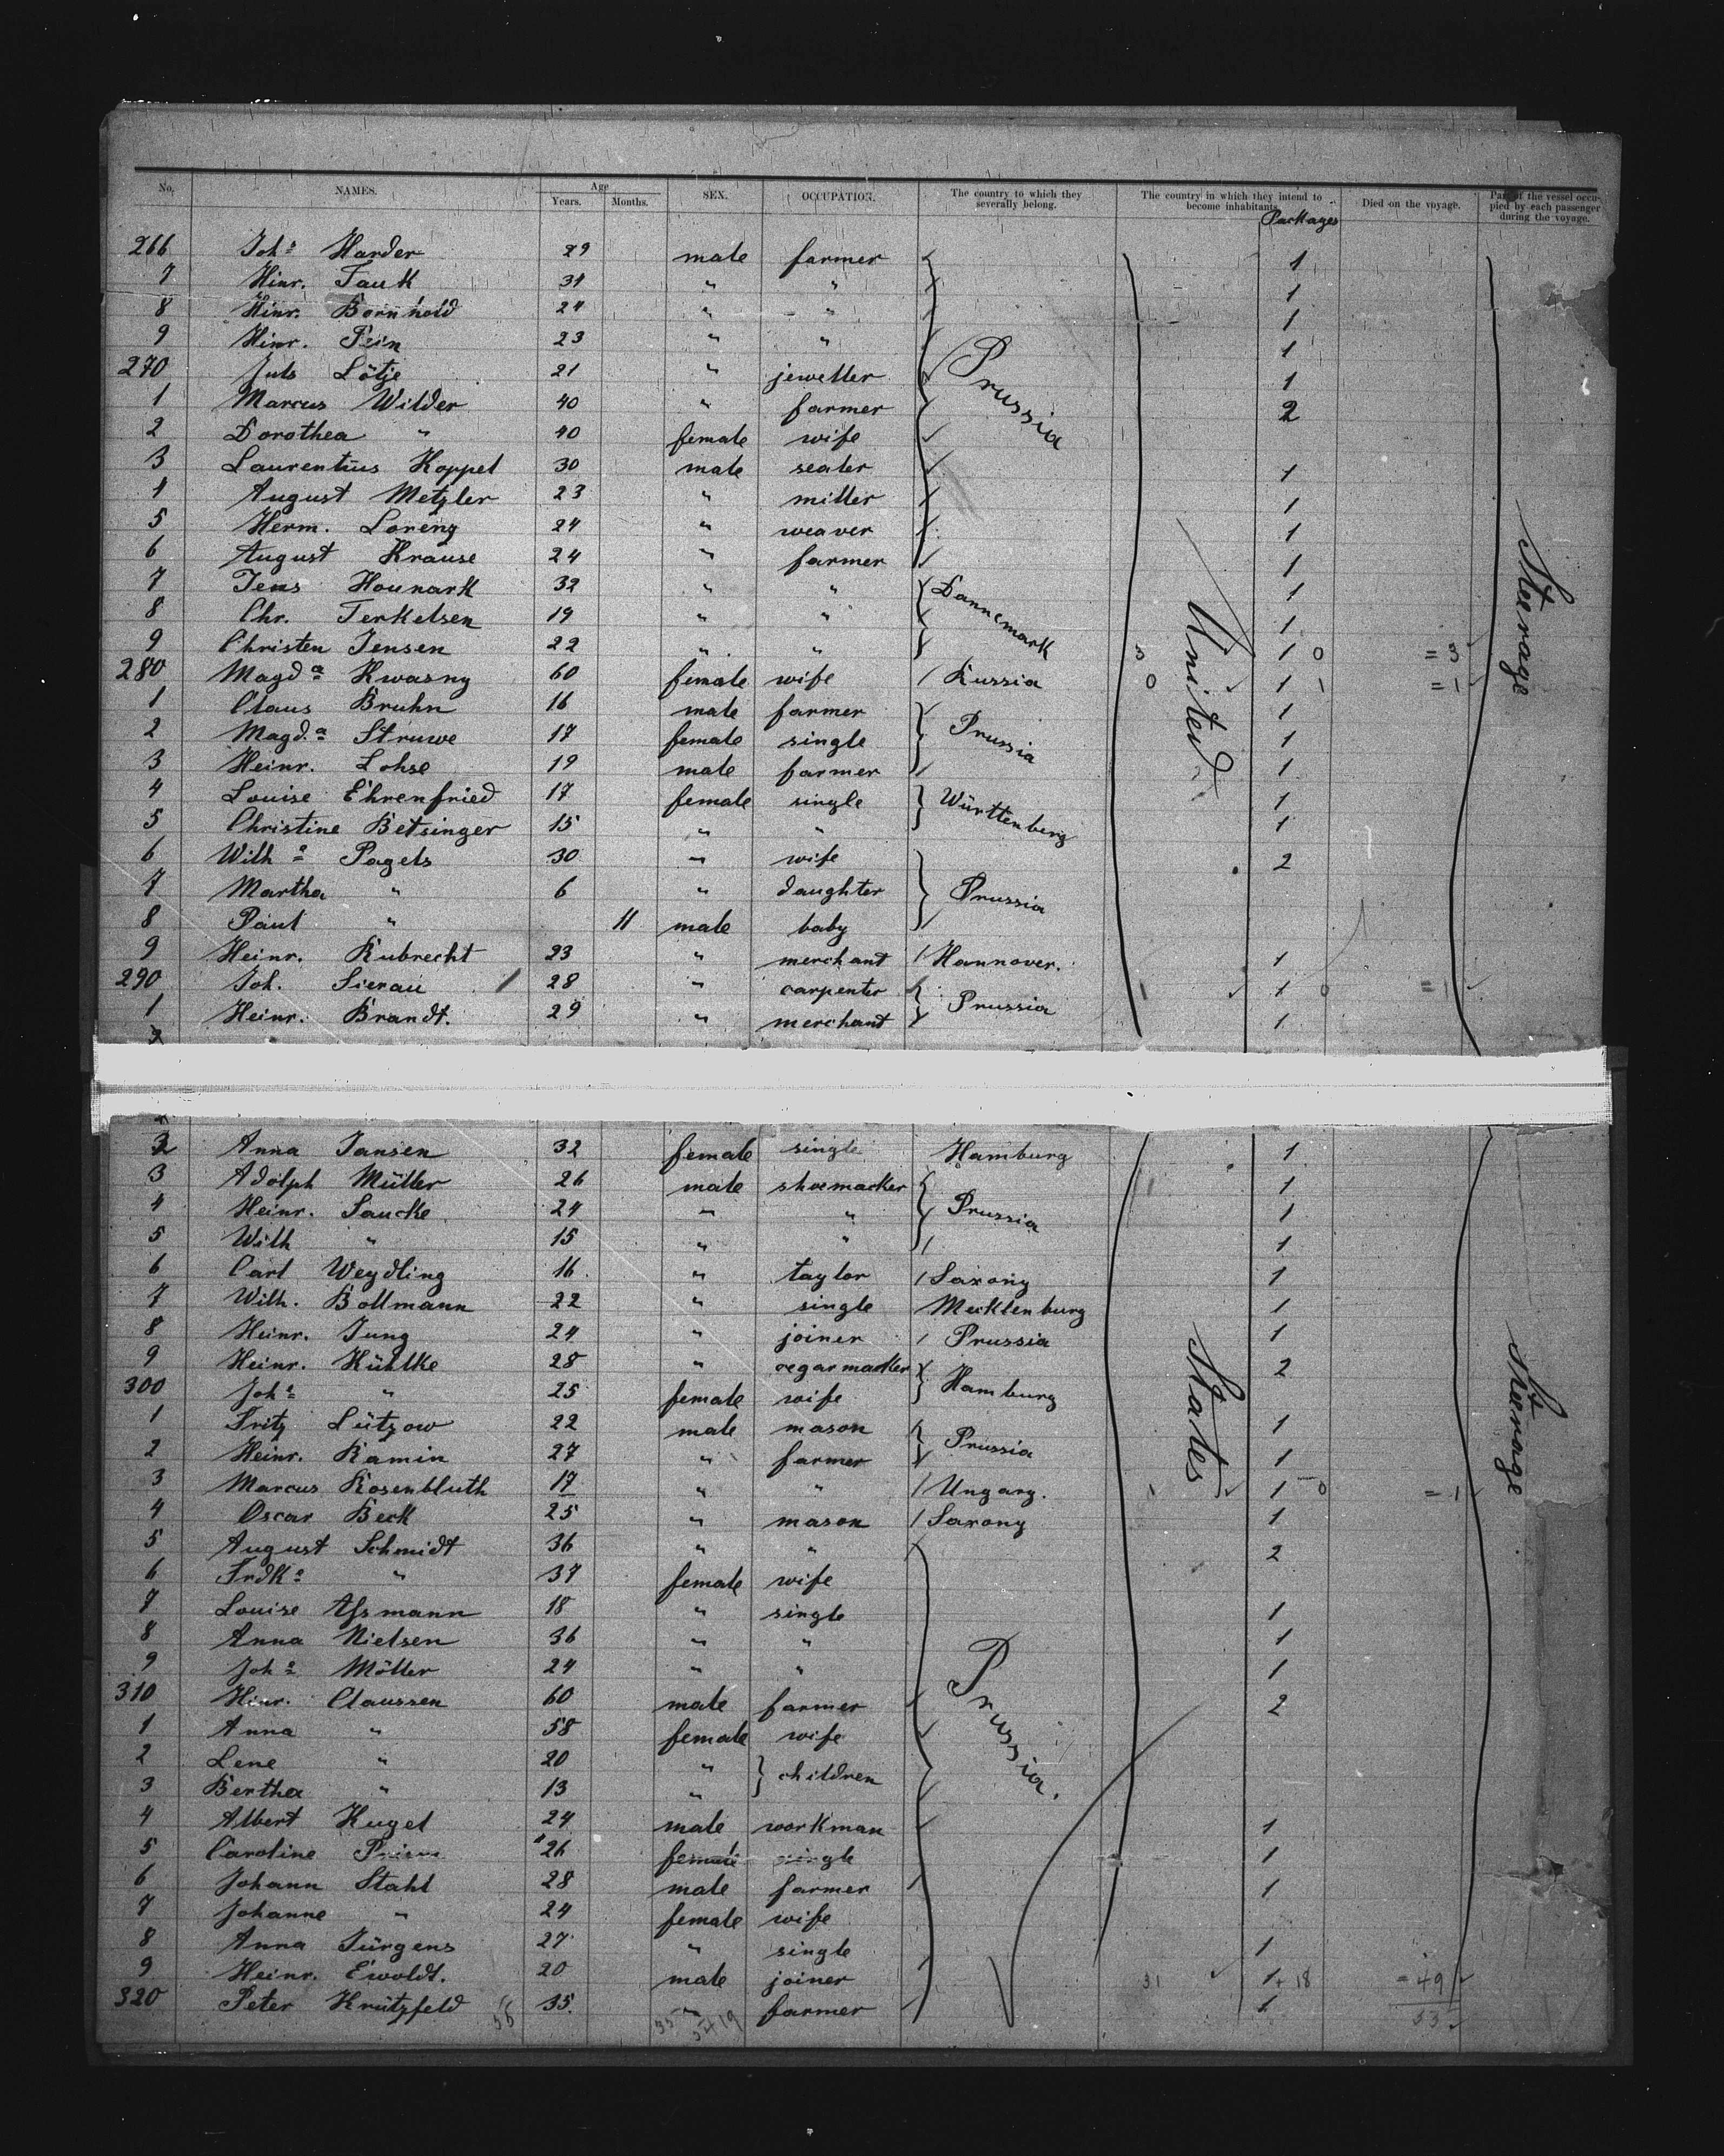 No. NAMES. Age Years. Months. SEX. OCCUPATION. The country to which they severally belong. The country in which they intend to become inhabitants. Packages Died on the voyage. Part of the vessel occupied by each passenger during the voyage.
266 Joha Harder 29 male farmer 1
7 Hinr. Fauk 31 " " 1
8 Hinr. Bornhold 24 " " 1
9 Hinr. Fein 23 " " 1
270 Juls Lötje 21 " jeweller Prussia 1
1 Marcus Wilder 40 " farmer 2
2 Dorothea " 40 female wife
3 Laurentius Koppel 30 male sealer 1
4 August Metzler 23 " miller 1
5 Herm. Lorenz 24 " weaver 1
6 August Krause 24 " farmer 1
7 Jens Hounark 32 " " Dannemark 1
8 Chr. Terkelsen 19 " " 1
9 Christen Jensen 22 " " 3 1 0 = 3
280 Magda Kwasny 60 female wife Russia 0 1 1 = 1
1 Claus Bruhn 16 male farmer 1
2 Magd.a Struwe 17 female single Prussia United 1 Steerage
3 Heinr. Lohse 19 male farmer 1
4 Louise Ehrenfried 17 female single Württenberg 1
5 Christine Betsinger 15 " " 1
6 Wilha Pagels 30 " wife 2
7 Martha " 6 " daughter Prussia
8 Paul " 11 male baby
9 Heinr. Rubrecht 23 " merchant Hannover. 1
290 Joh. Sierau 28 " carpenter 1 1 0 = 1
1 Heinr. Brandt. 29 " merchant Prussia 1
2 Anna Jansen 32 female single Hamburg 1
3 Adolph Müller 26 male shoemacker 1
4 Heinr. Saucke 24 " " Prussia 1
5 Wilh " 15 " " 1
6 Carl Weydling 16 " taylor Saxony 1
7 Wilh. Bollmann 22 " single Mecklenburg 1
8 Heinr. Jung 24 " joiner Prussia 1
9 Heinr. Kühlke 28 " cegarmacker 2
300 Joha " 25 female wife Hamburg
1 Fritz Lützow 22 male mason States 1 Steerage
2 Heinr. Ramin 27 " farmer Prussia 1
3 Marcus Rosenbluth 17 " " Ungarg. 1 1 0 = 1
4 Oscar Beck 25 " mason Saxony 1
5 August Schmidt 36 " " 2
6 Frdka " 37 female wife
7 Louise Assmann 18 " single 1
8 Anna Nielsen 36 " " 1
9 Joha Möller 24 " " 1
310 Hinr. Claussen 60 male farmer Prussia. 2
1 Anna " 58 female wife
2 Lene " 20 " children
3 Bertha " 13 "
4 Albert Kugel 24 male workman 1
5 Caroline 26 female single 1
6 Johann Stahl 28 male farmer 1
7 Johanne " 24 female wife
8 Anna Jürgens 27 " single 1
9 Heinr. Ewoldt. 20 male joiner 31 1 + 18 = 49
320 Peter Krützfeld 35. " farmer 1 53